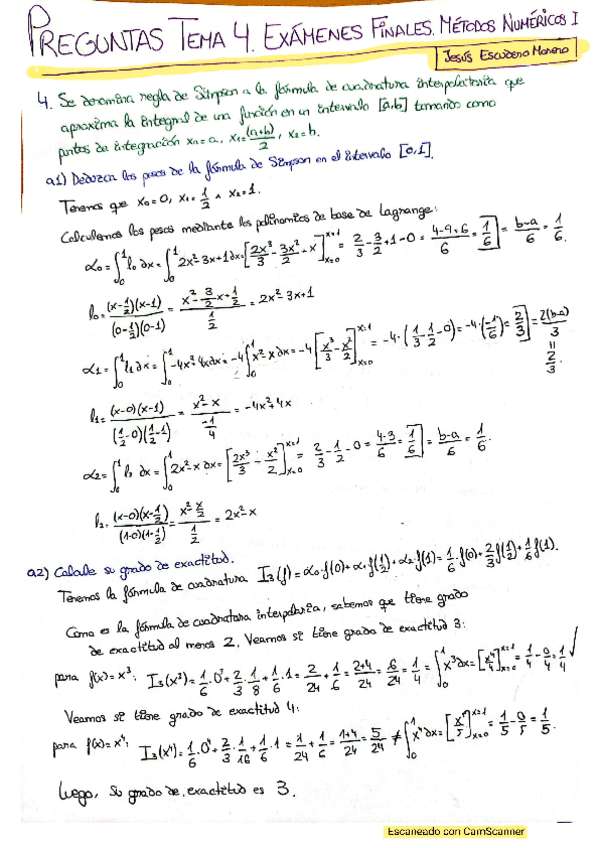 PREGUNTAS TEMA 4. EXÁMENES FINALES. MÉTODOS NUMÉRICOS I
Jesús Escudero Moreno
4. Se denomina regla de Simpson a la fórmula de cuadratura interpolatoria que
aproxima la integral de una función en un intervalo [a,b] tomando como
puntos de integración x₀=a, x₁=(a+b)/2, x₂=b.
a1) Deduzca los pesos de la fórmula de Simpson en el intervalo [0,1].
Tenemos que x₀=0, x₁=1/2 ∧ x₂=1.
Calculemos los pesos mediante los polinomios de base de Lagrange:
α₀=∫₀¹ l₀ dx = ∫₀¹ 2x²-3x+1 dx = [2x³/3 - 3x²/2 + x]ₓ₌₀ˣ⁼¹ = 2/3 - 3/2 + 1 - 0 = (4-9+6)/6 = 1/6 = (b-a)/6 = 1/6.
l₀ = (x-1/2)(x-1)/((0-1/2)(0-1)) = (x²-3/2x+1/2)/(1/2) = 2x²-3x+1
α₁=∫₀¹ l₁ dx = ∫₀¹ -4x²+4x dx = -4∫₀¹ x²-x dx = -4[x³/3 - x²/2]ₓ₌₀ˣ⁼¹ = -4·(1/3-1/2-0) = -4·(-1/6) = 2/3 = 2(b-a)/3 = 2/3.
l₁ = (x-0)(x-1)/((1/2-0)(1/2-1)) = (x²-x)/(-1/4) = -4x²+4x
α₂=∫₀¹ l₂ dx = ∫₀¹ 2x²-x dx = [2x³/3 - x²/2]ₓ₌₀ˣ⁼¹ = 2/3 - 1/2 - 0 = (4-3)/6 = 1/6 = (b-a)/6 = 1/6.
l₂ = (x-0)(x-1/2)/((1-0)(1-1/2)) = (x²-x/2)/(1/2) = 2x²-x
a2) Calcule su grado de exactitud.
Tenemos la fórmula de cuadratura I₃(f)=α₀·f(0)+α₁·f(1/2)+α₂·f(1)=1/6·f(0)+2/3f(1/2)+1/6f(1).
Como es la fórmula de cuadratura interpolatoria, sabemos que tiene grado
de exactitud al menos 2. Veamos si tiene grado de exactitud 3:
para f(x)=x³: I₃(x³)=1/6·0³+2/3·1/8+1/6·1=2/24+1/6=(2+4)/24=6/24=1/4=∫₀¹x³dx=[x⁴/4]ₓ₌₀ˣ⁼¹=1/4-0/4=1/4 √
Veamos si tiene grado de exactitud 4:
para f(x)=x⁴: I₃(x⁴)=1/6·0⁴+2/3·1/16+1/6·1=1/24+1/6=(1+4)/24=5/24≠∫₀¹x⁴dx=[x⁵/5]ₓ₌₀ˣ⁼¹=1/5-0/5=1/5.
Luego, su grado de exactitud es 3.
Escaneado con CamScanner